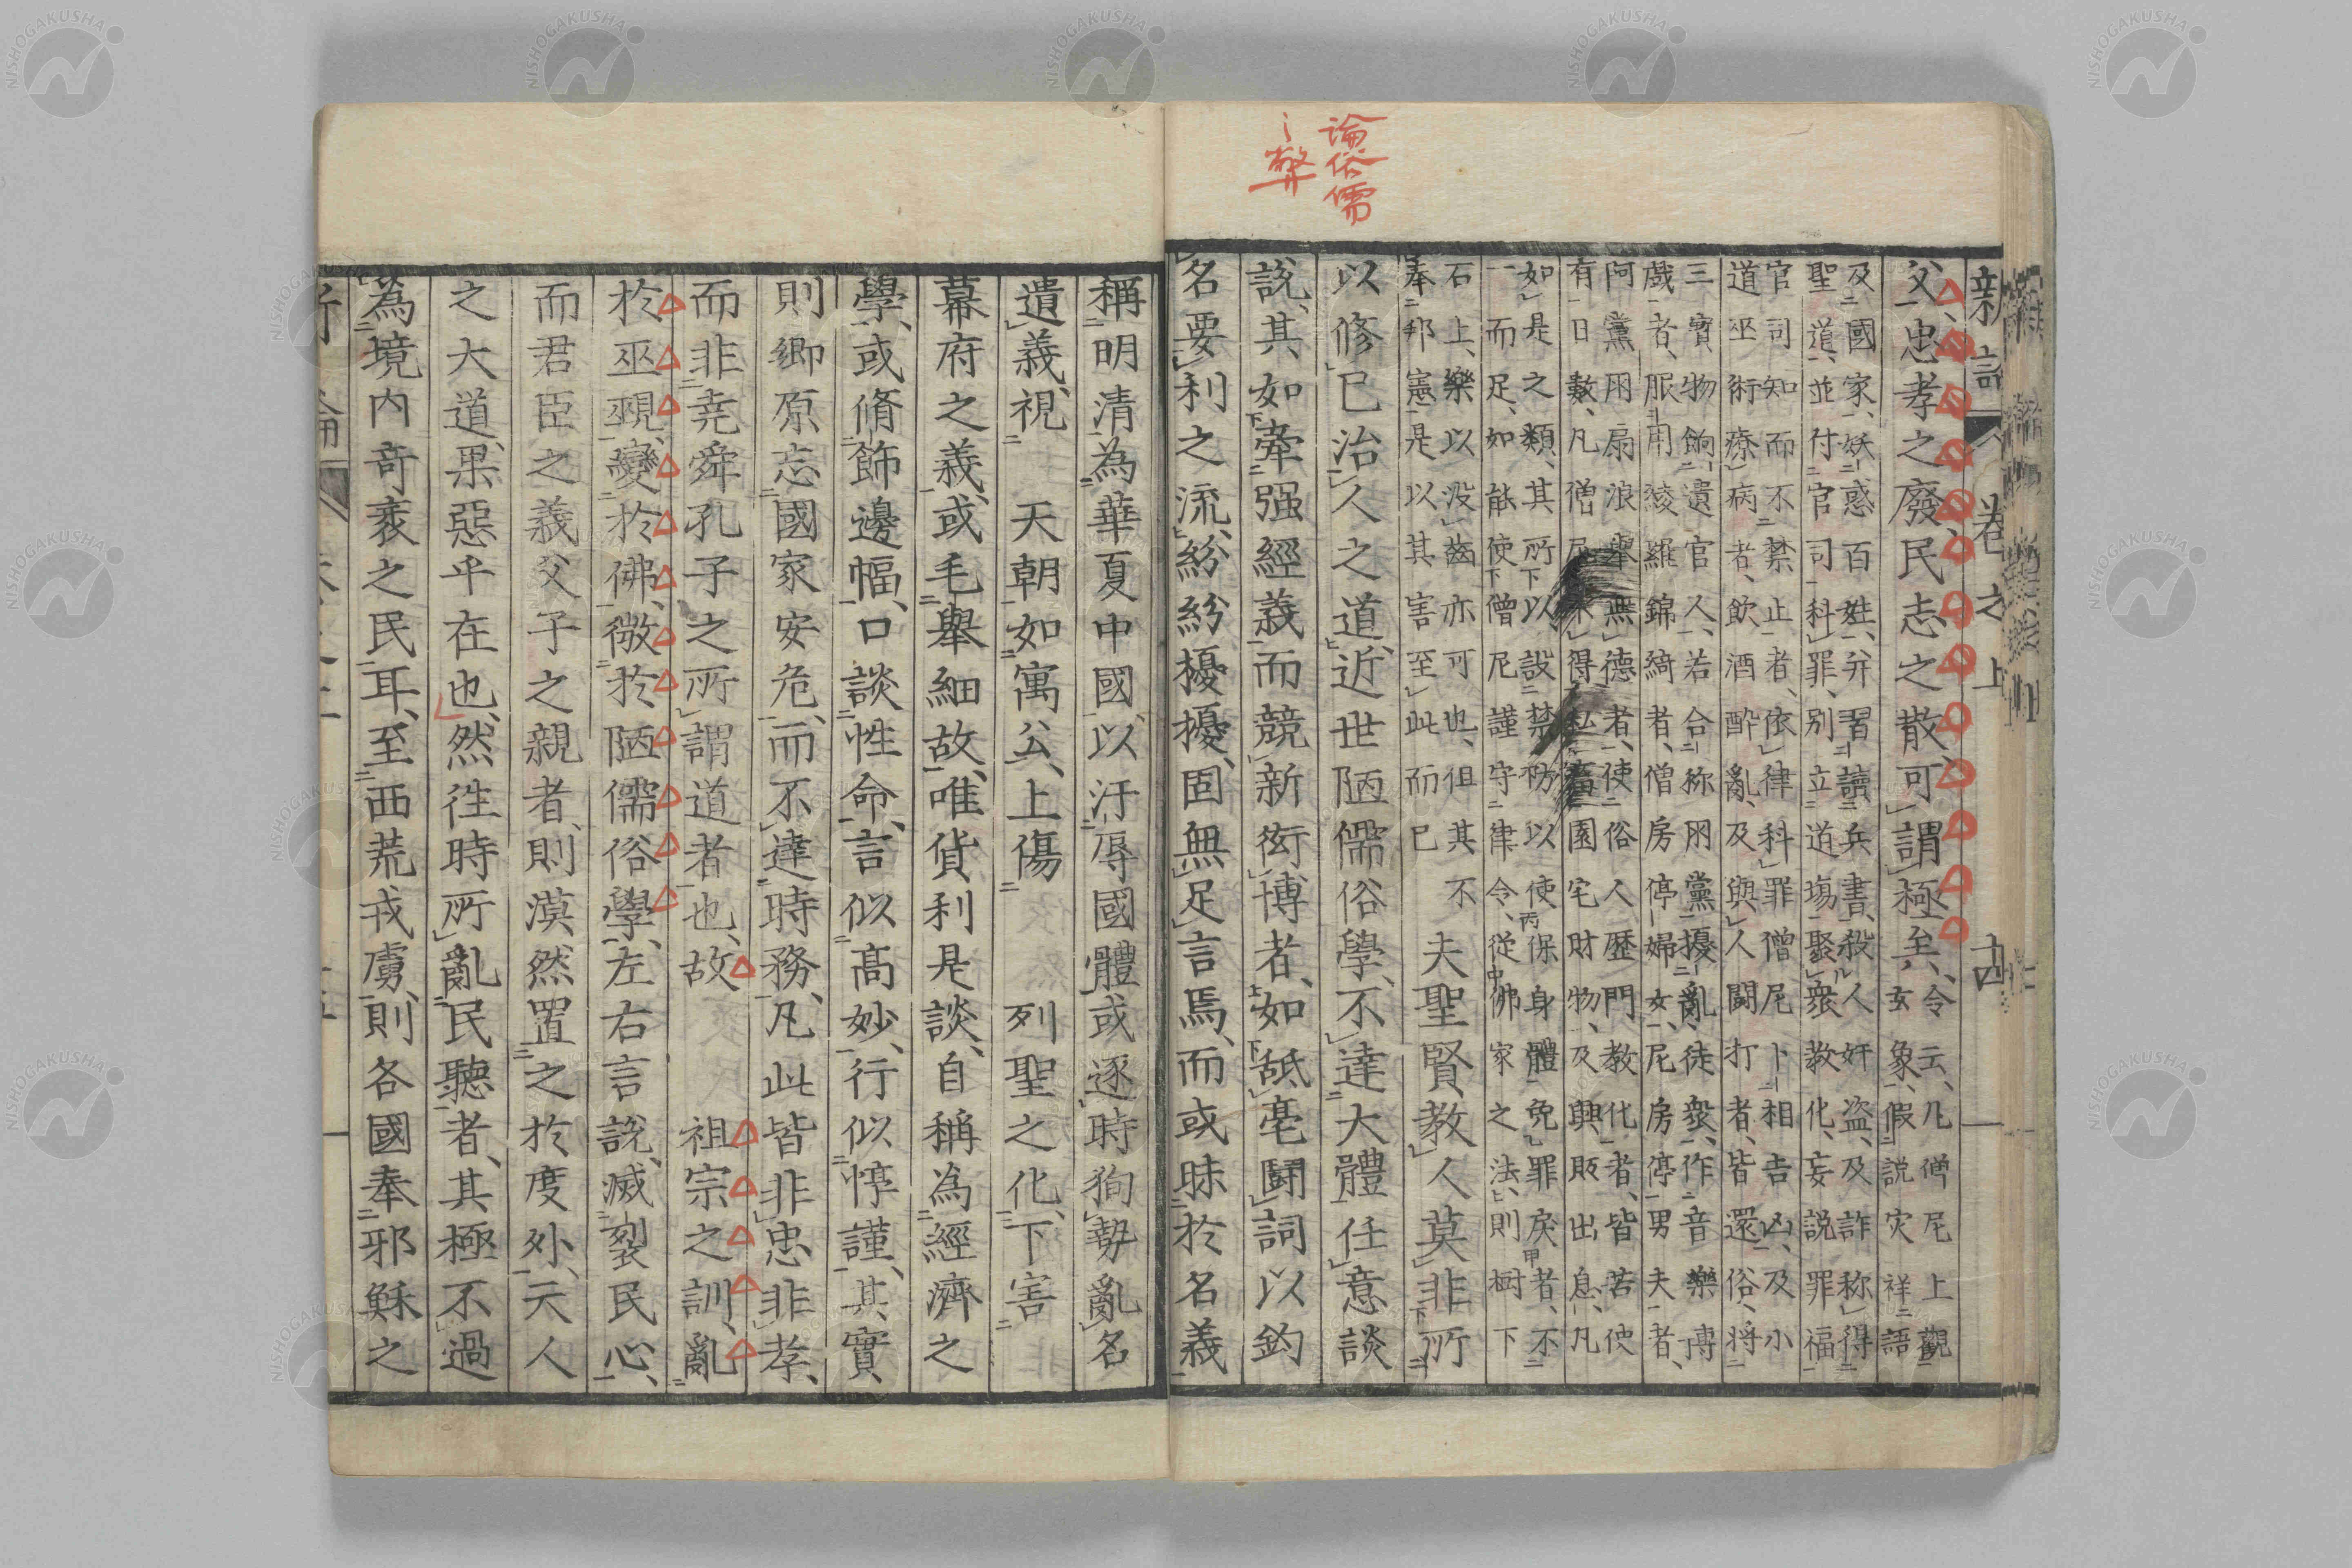 論俗儒
之弊
新論 卷之上 十四
父、忠孝之廢、民志之散、可謂極至、令云、凡僧尼上觀
玄象、假說灾祥、語
及國家、妖惑百姓、并習讀兵書、殺人奸盜、及詐称得
聖道、並付官司科罪、別立道場、聚衆教化、妄說罪福
官司知而不禁止者、依律科罪、僧尼卜相吉凶、及小
道巫術療病者、飲酒醉亂、及與人鬪打者、皆還俗、將
三寶物餉遺官人、若合称朋黨、擾亂徒衆、作音樂博
戲者、服用綾羅錦綺者、僧房停婦女、尼房停男夫者、
阿黨朋扇浪擧無德者、使俗人歷門教化者、皆苦使
有日數、凡僧尼不得私蓄園宅財物、及興販出息、凡
如是之類、其所以設禁防以使保身體免罪戾者、不
一而足、如能使僧尼謹守律令、從佛家之法、則樹下
石上、樂以没齒亦可也、但其不
奉邦憲、是以其害至此而已
夫聖賢教人、莫非所
以修己治人之道、近世陋儒俗學、不達大體、任意談
說、其如牽强經義而競新衒博者、如舐毫鬪詞以釣
名要利之流、紛紛擾擾、固無足言焉、而或昧於名義
稱明清為華夏中國、以汙辱國體、或逐時狥勢、亂名
遺義、視 天朝如寓公、上傷 列聖之化、下害
幕府之義、或毛擧細故、唯貨利是談、自稱為經濟之
學、或脩飾邊幅、口談性命、言似高妙、行似惇謹、其實
則鄉原忘國家安危、而不達時務、凡此皆非忠非孝、
而非堯舜孔子之所謂道者也、故 祖宗之訓、亂
於巫覡、變於佛、微於陋儒俗學、左右言說、滅裂民心、
而君臣之義父子之親者、則漠然置之於度外、天人
之大道、果惡乎在也、然徃時所亂民聽者、其極不過
為境內奇衺之民耳、至西荒戎虜、則各國奉邪穌之